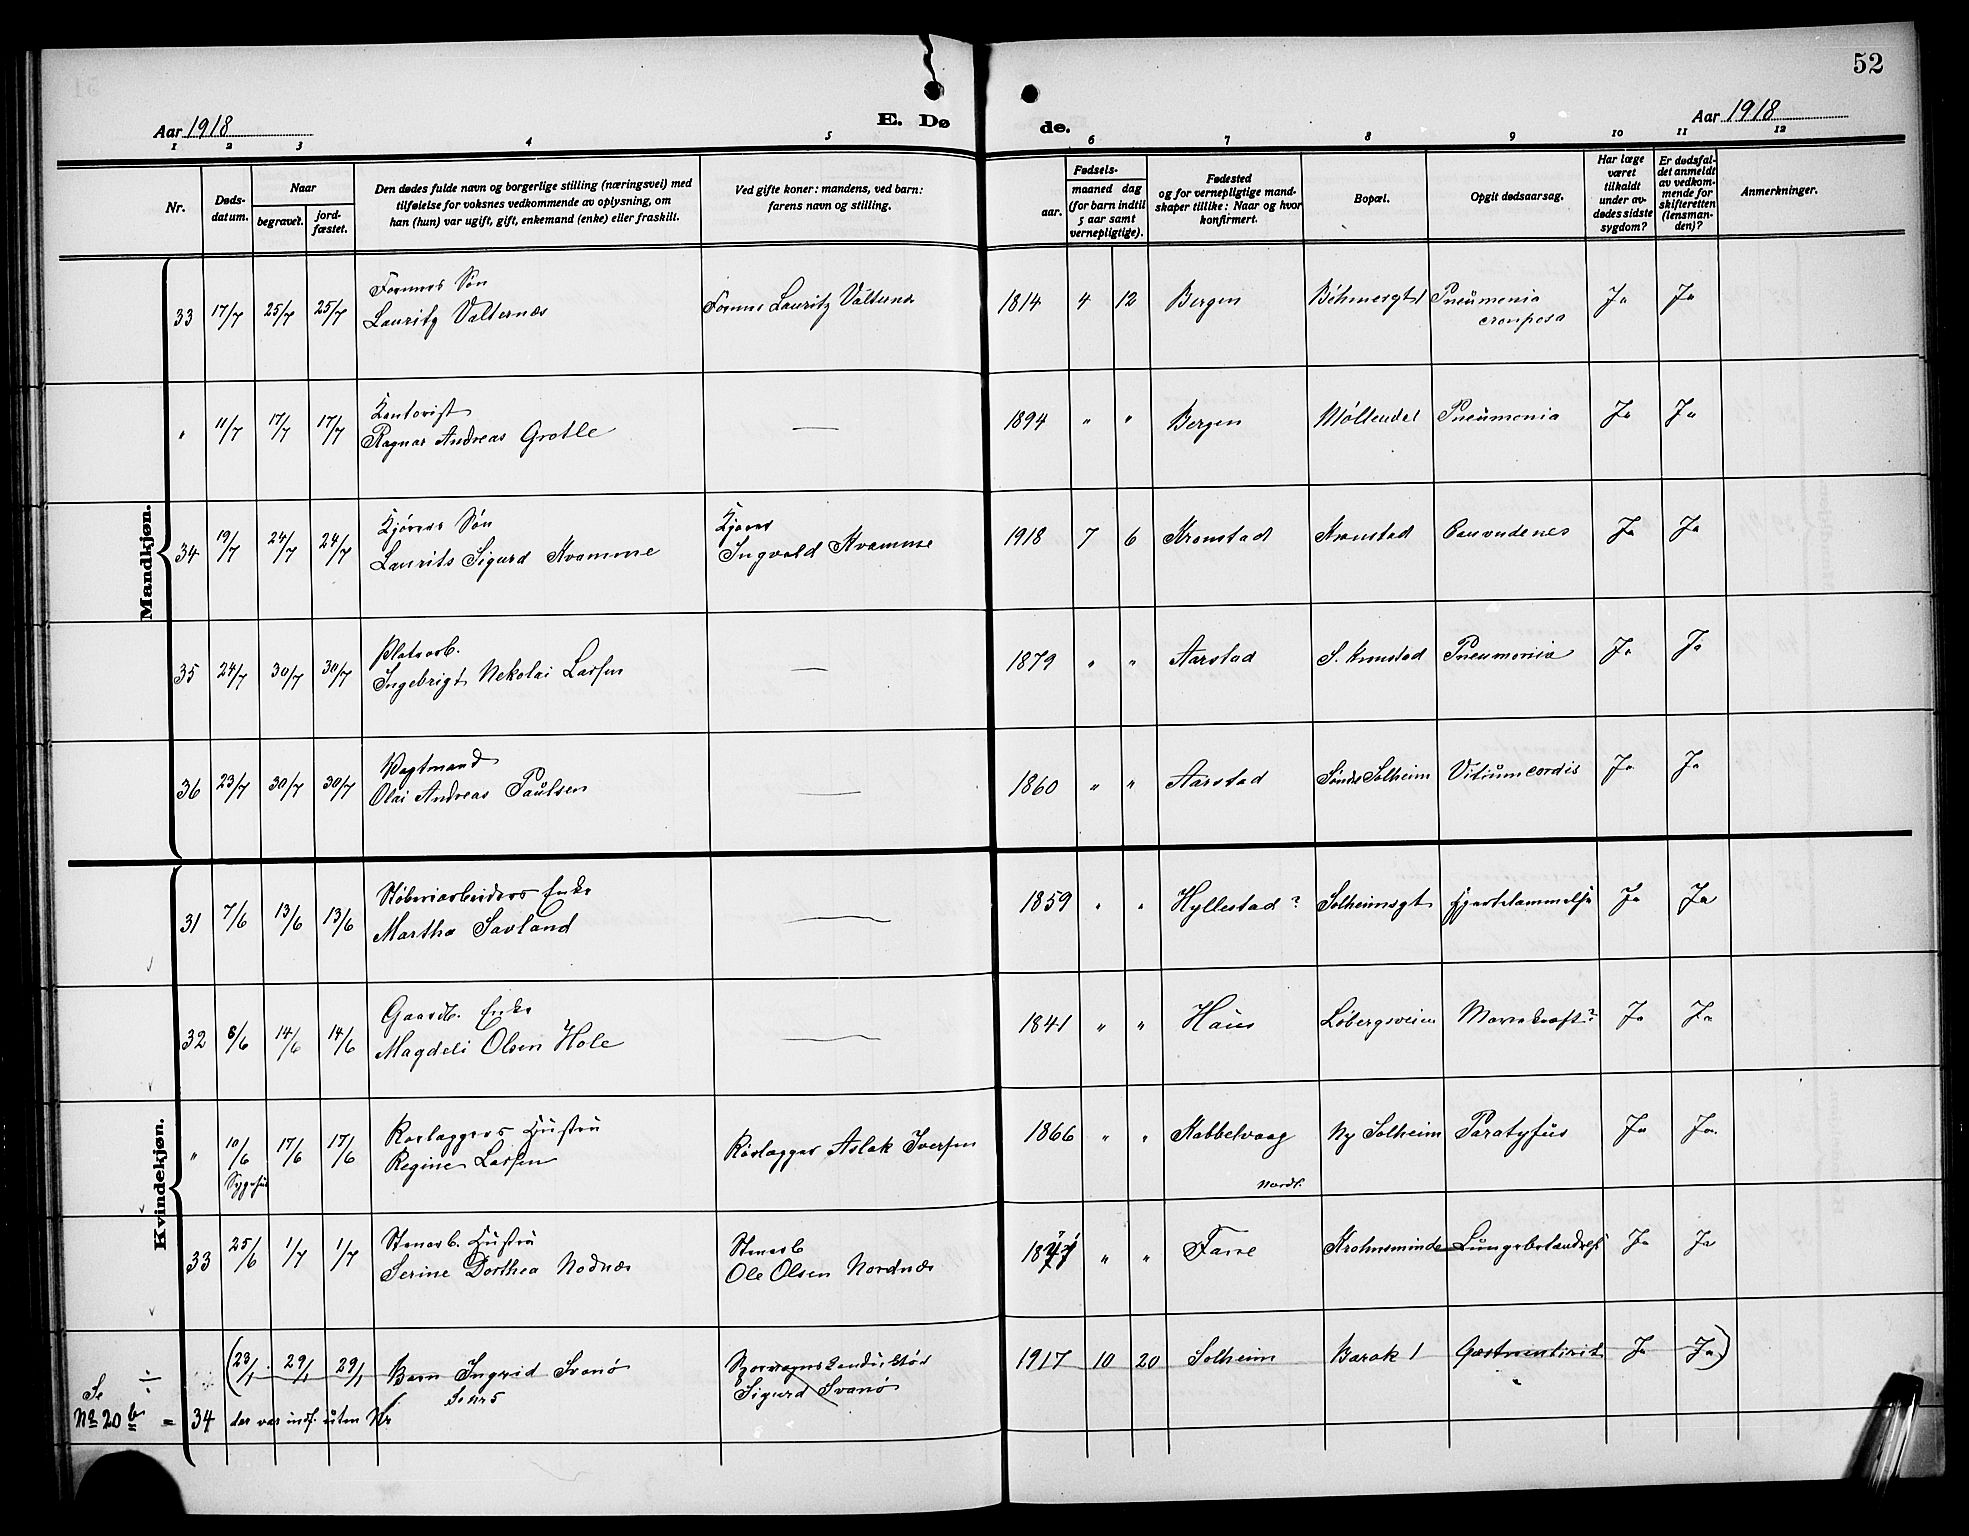 52
Aar 1918
E. Dø
de.
Aar 1918
1 2 3 4 5 6 7 8 9 10 11 12
Nr.
Døds-
datum.
Naar
begravet.
jord-
fæstet.
Den dødes fulde navn og borgerlige stilling (næringsvei) med
tilføielse for voksnes vedkommende av oplysning, om
han (hun) var ugift, gift, enkemand (enke) eller fraskilt.
Ved gifte koner: mandens, ved barn:
farens navn og stilling.
Fødsels-
aar.
maaned dag
(for barn indtil
5 aar samt
vernepligtige).
Fødested
og for vernepligtige mand-
skaper tillike: Naar og hvor
konfirmert.
Bopæl.
Opgit dødsaarsag.
Har læge
været
tilkaldt
under av-
dødes sidste
sygdom?
Er dødsfal-
det anmeldt
av vedkom-
mende for
skifteretten
(lensman-
den)?
Anmerkninger.
Mandkjøn.
Formers Søn
33 17/7 25/7 25/7 Lauritz Valternæs Former Lauritz Valternæs 1814 4 12 Bergen Böhmergt Pneumonia
crouposa Ja Ja
Kontorist
" 11/7 17/7 17/7 Ragnar Andreas Grotle — 1894 " " Bergen Møllendal Pneumonia Ja Ja
Kjørers Søn
34 19/7 24/7 24/7 Laurits Sigurd Kvamme
Kjører
Ingvald Kvamme 1918 7 6 Kronstad Kronstad Ja Ja
Platearb.
35 24/7 30/7 30/7 Ingebrigt Nekolai Larsen — 1879 " " Aarstad S. Kronstad Pneumonia Ja Ja
Vagtmand
36 23/7 30/7 30/7 Olai Andreas Paulsen — 1860 " " Aarstad Søndre Solheim Vitium cordis Ja Ja
Kvindekjøn.
Støberiarbeiders Enke
31 7/6 13/6 13/6 Martha Savland — 1859 " " Hyllestad? Solheimsgt Hjertelammelse Ja Ja
Gaardb. Enke
32 8/6 14/6 14/6 Magdeli Olsen Hole — 1841 " " Haus Løbergsveien Mavekræft? Ja Ja
Rørlæggers Hustru
" 10/6 17/6 17/6 Regine Larsen Rørlægger Aslak Iversen 1866 " " Kabbelvaag Ny Solheim Paratyfus Ja Ja.
Sygehus
Nordl.
Stenarb. Hustru
33 25/6 1/7 1/7 Serine Dorthea Nodnæs
Stenarb
Ole Olsen Nordnæs 18 " " Krohnsminde Lungebetændelse Ja Ja
÷ (23/1 29/1 29/1 Barn Ingrid Svanø
Sigurd Svanø 1917 10 20 Solheim Barak 1 Ja Ja)
Se
No 20 b = 34 der var indf. uten Nr